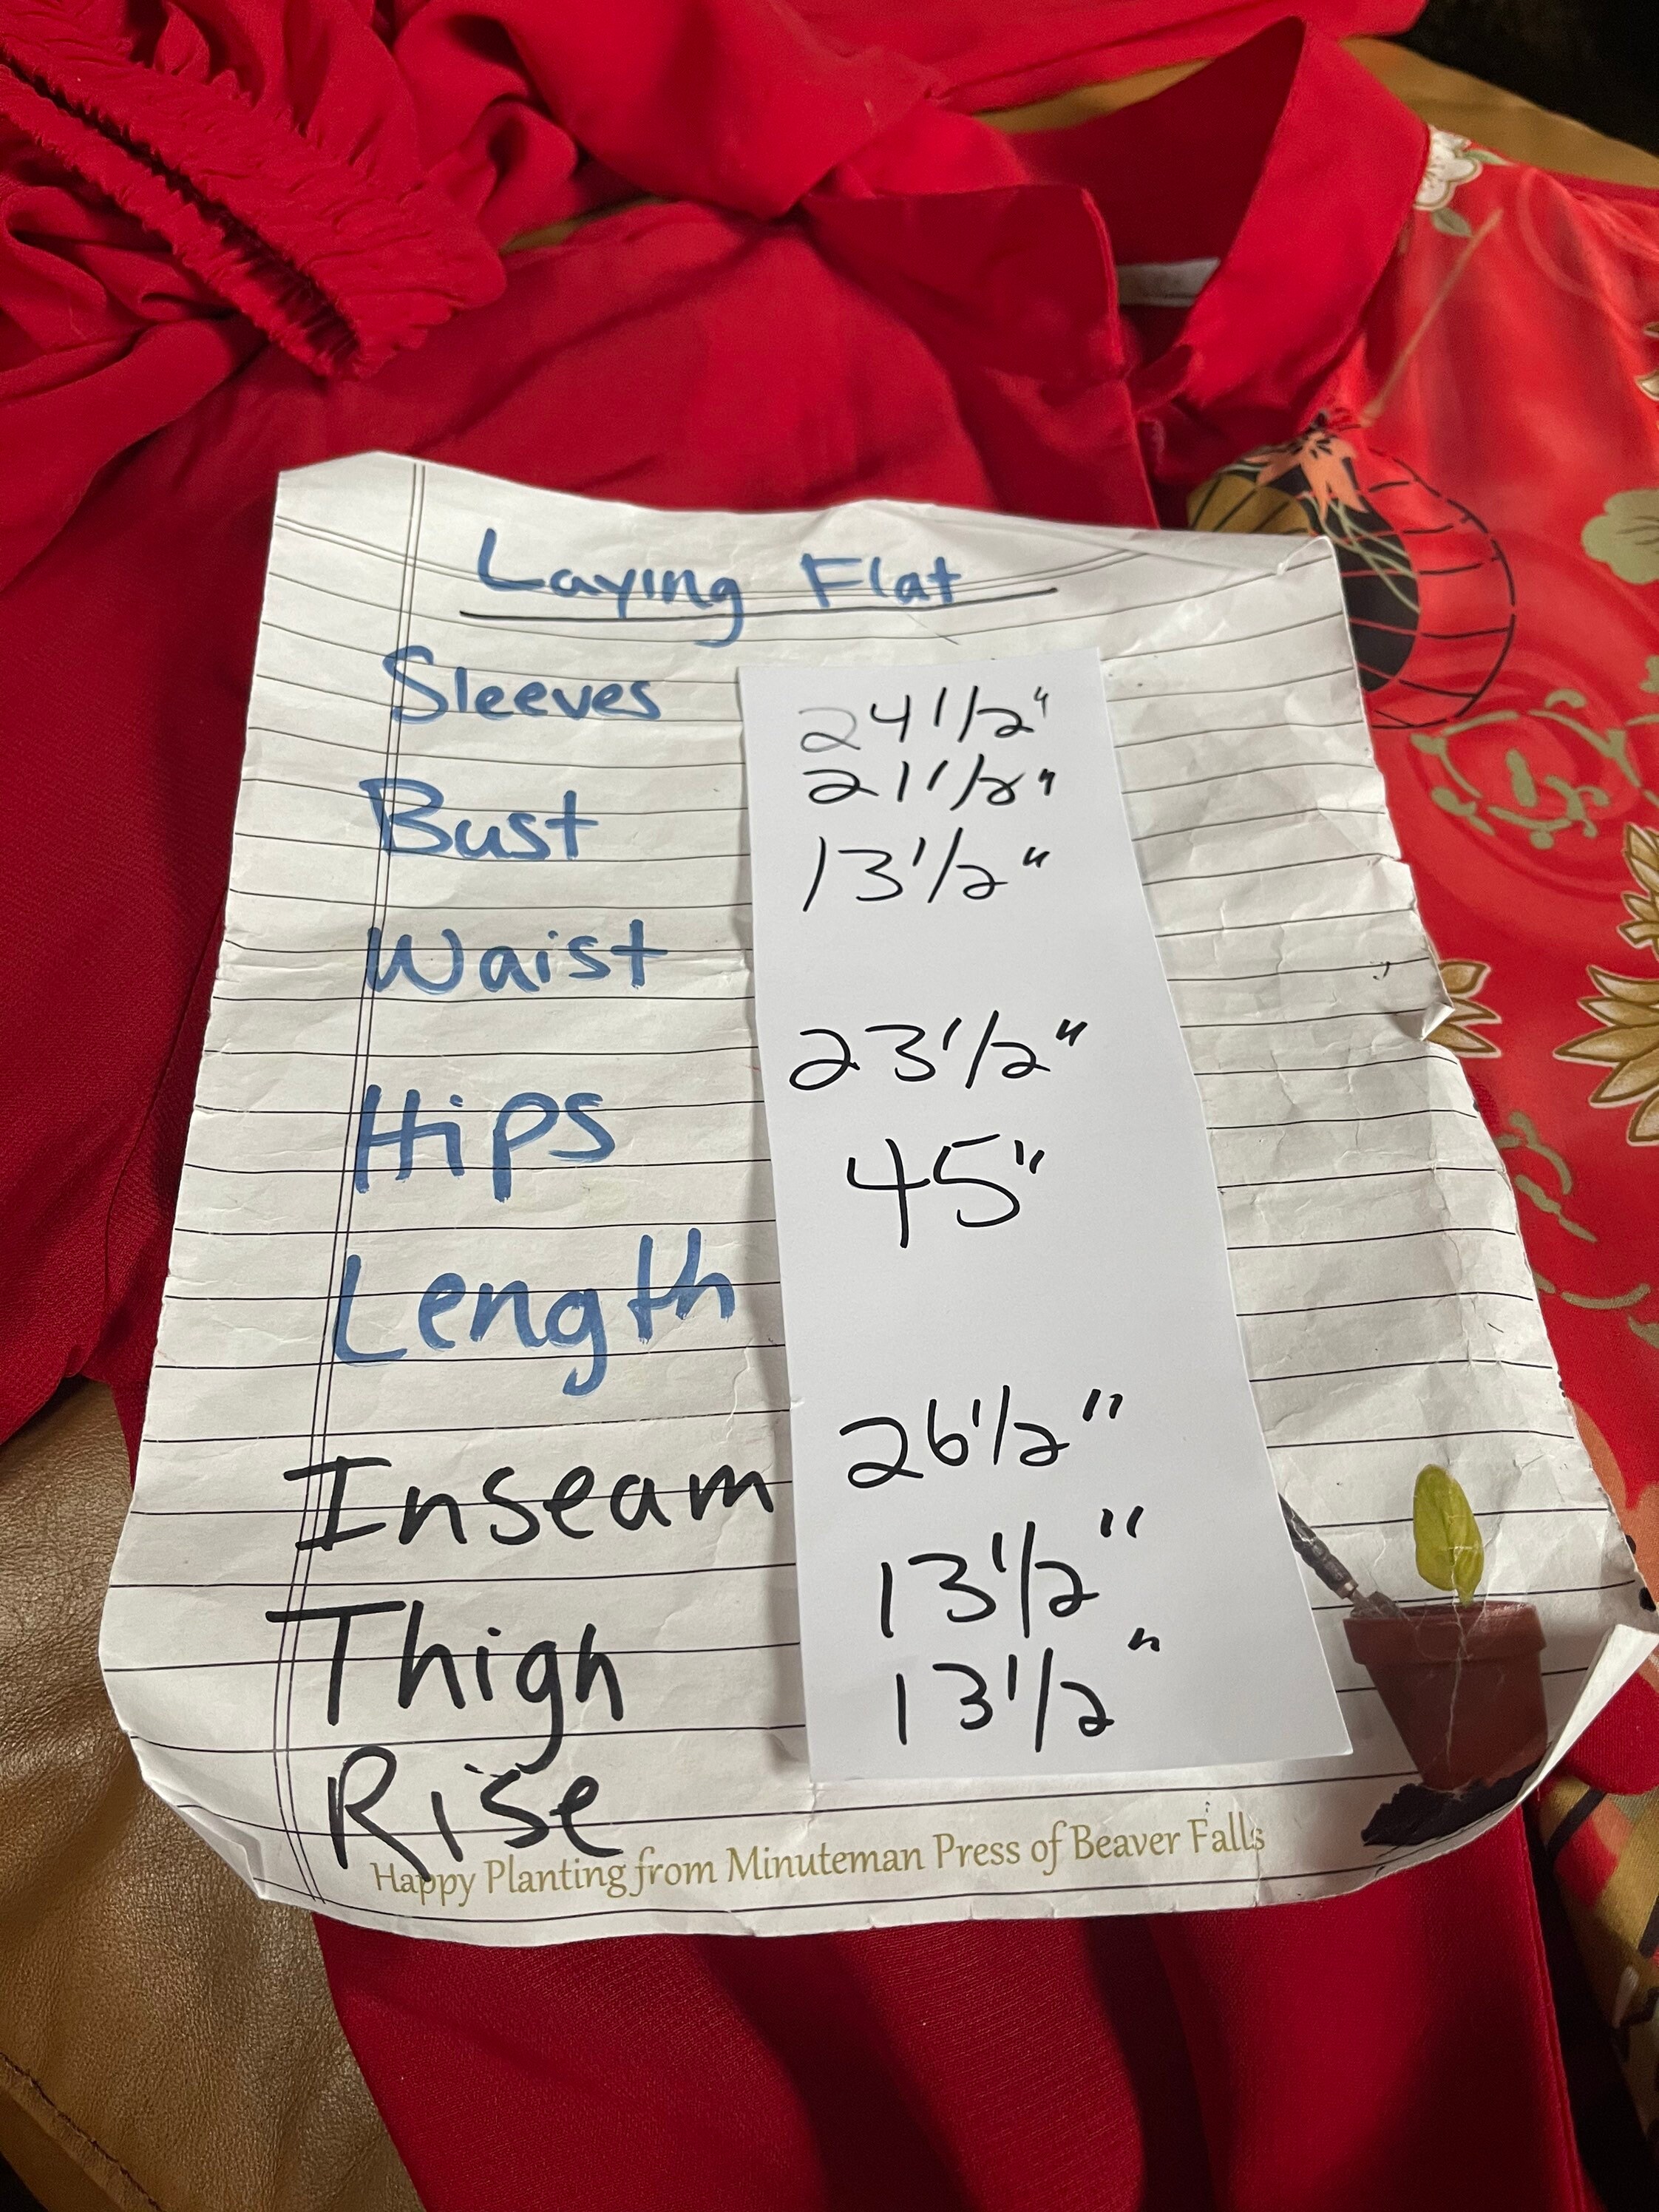 Laying Flat
Sleeves 24 1/2"
Bust 21 1/2"
Waist 13 1/2"
Hips 23 1/2"
Length 45"
Inseam 26 1/2"
Thigh 13 1/2"
Rise 13 1/2"
Happy Planting from Minuteman Press of Beaver Falls